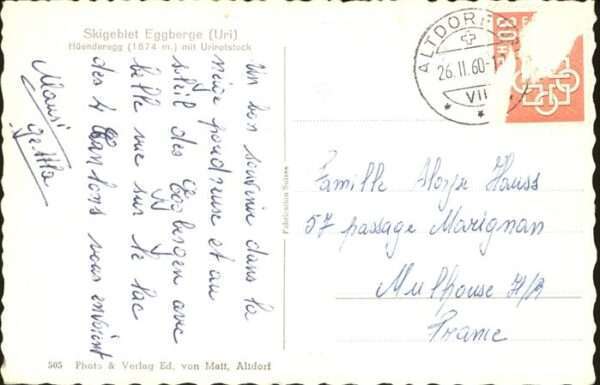 Skigebiet Eggberge (Uri)
Hüenderegg (1874 m.) mit Urirotstock
Un bon souvenir dans la
neige poudreuse et au
soleil des Eggbergen avec
belle vue sur le lac
des 4 Cantons vous envoient
Mausi
ALTDORF
26.II.60-1
VII
30
Fabrication Suisse
Famille Aloyse Hauss
57 passage Marignan
Mulhouse H/R
France
505 Photo & Verlag Ed. von Matt, Altdorf